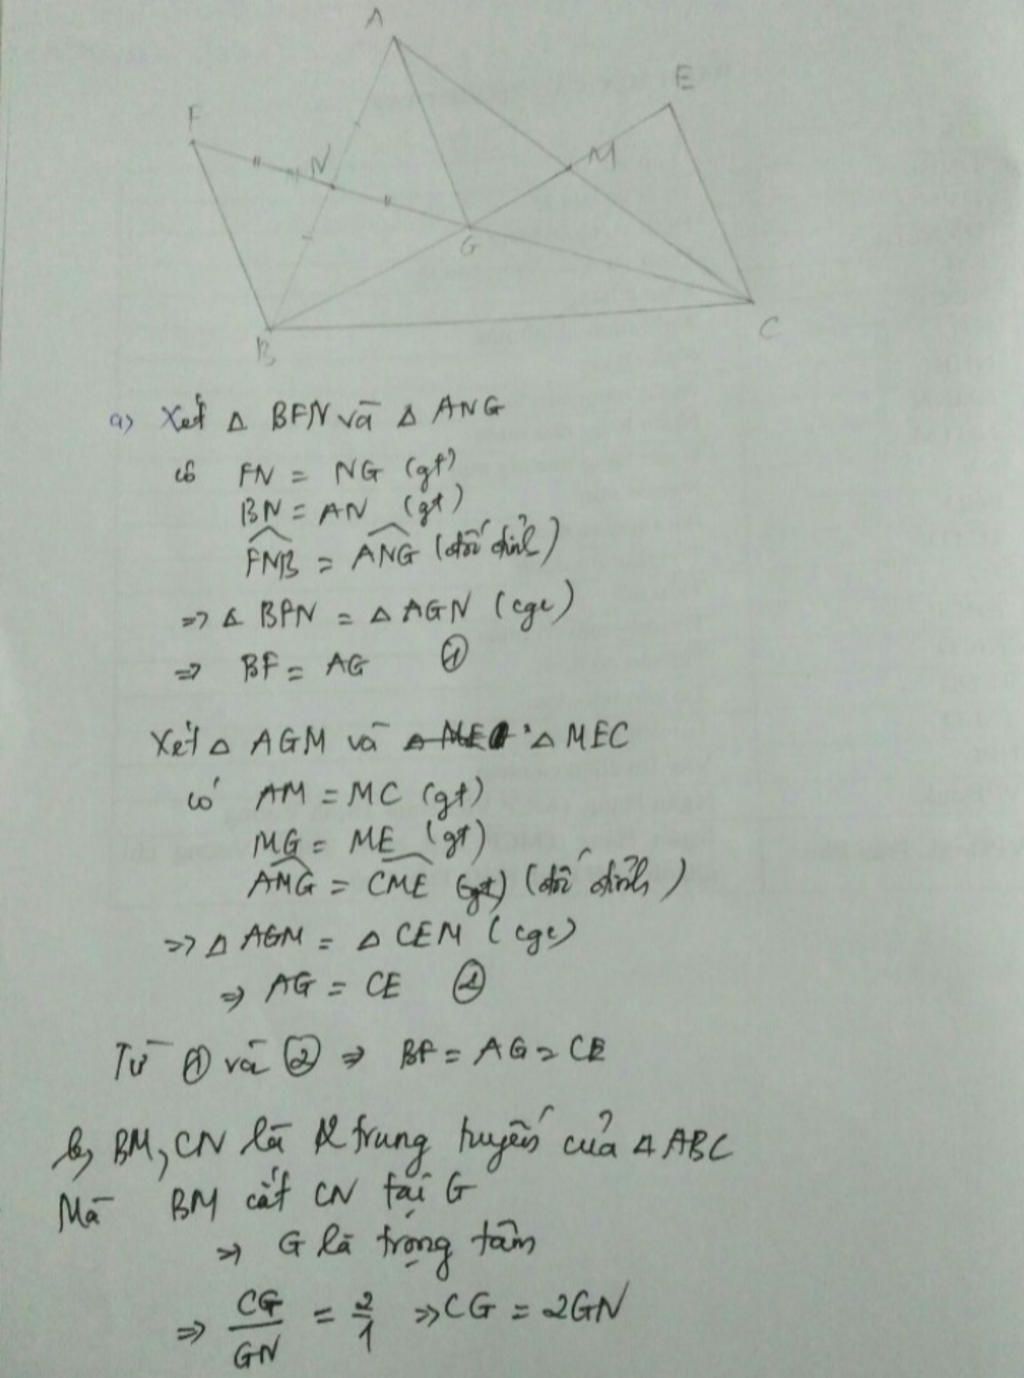 A
E
F
N
M
G
B
C
a) Xét Δ BFN và Δ ANG
có FN = NG (gt)
BN = AN (gt)
FNB = ANG (đối đỉnh)
=> Δ BFN = Δ AGN (cgc)
=> BF = AG ①
Xét Δ AGM và Δ MEC
có AM = MC (gt)
MG = ME (gt)
AMG = CME (gt) (đối đỉnh)
=> Δ AGM = Δ CEM (cgc)
=> AG = CE ②
Từ ① và ② => BF = AG = CE
b, BM, CN là trung tuyến của Δ ABC
Mà BM cắt CN tại G
=> G là trọng tâm
=> CG/GN = 2/1 => CG = 2GN